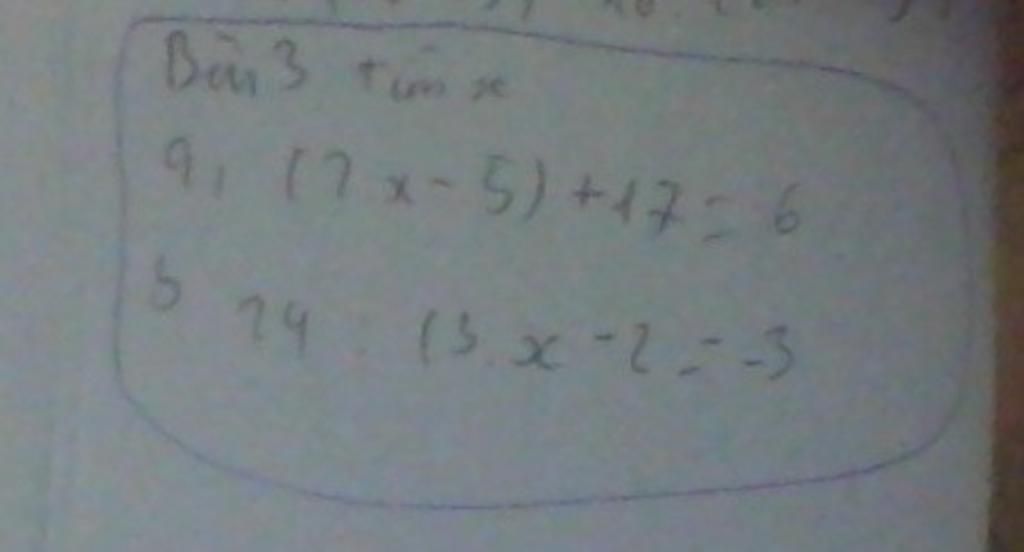 Bài 3 tìm x
a, (2x - 5) + 17 = 6
b 24 : (3.x - 2 = -3